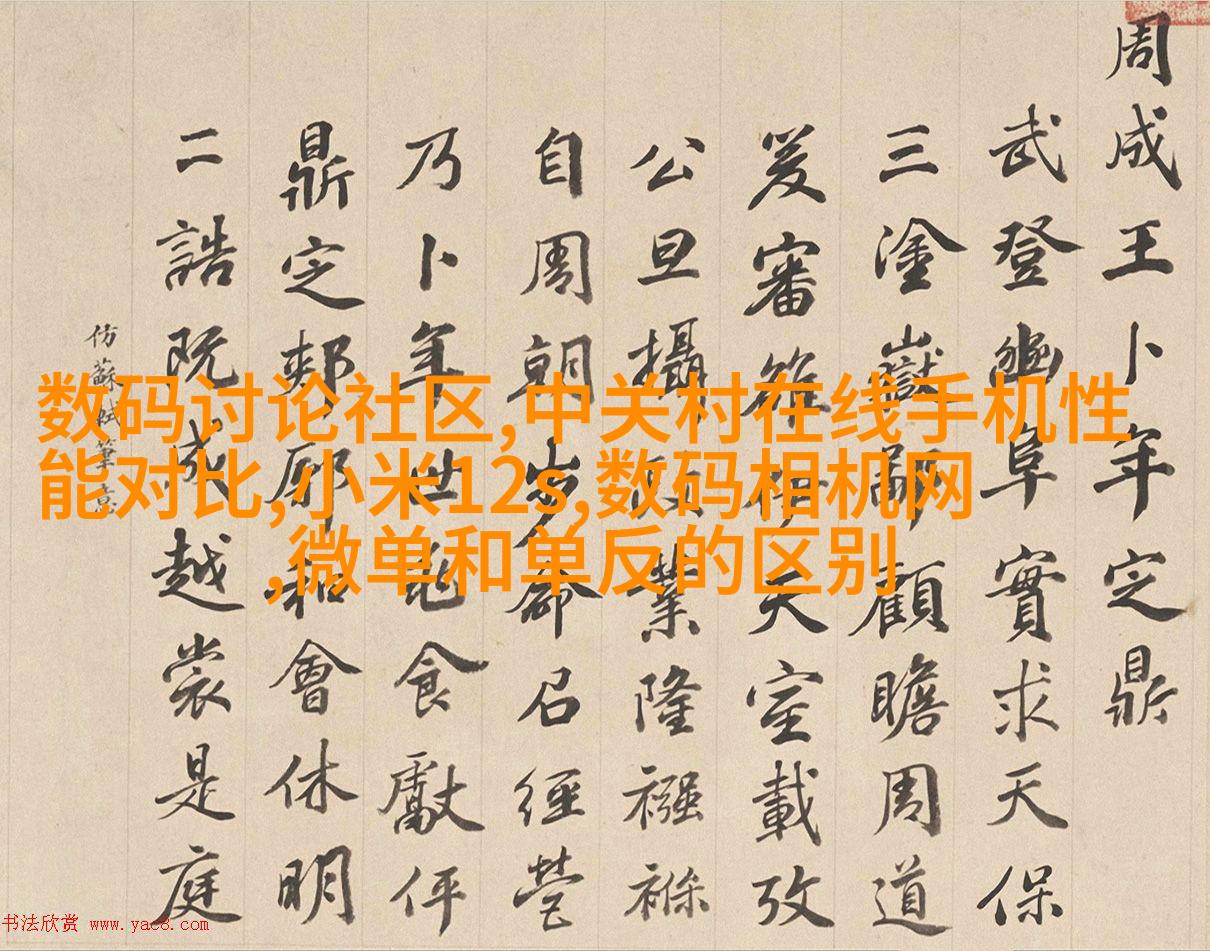 周成王卜年定鼎
武登豳阜實求天保
三塗嶽鄙顧瞻周道
爰審雒伊天室載攷
公旦攝政業隆襁褓
自周朝步命召經營
乃卜年世龜食獻伻
鼎定郟鄏和會休明
二誥既成越裳是庭
仿蘇軾筆意
数码讨论社区,中关村在线手机性
能对比,小米12s,数码相机网
,微单和单反的区别
书法欣赏 www.yac8.com